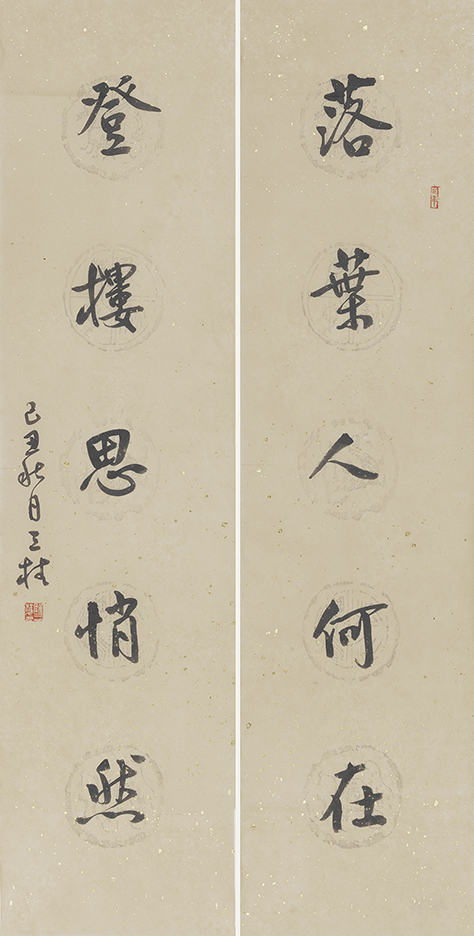 落葉人何在
登樓思悄然
己丑秋月